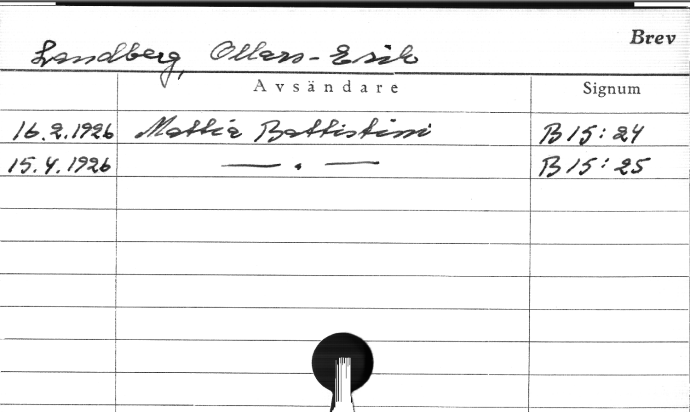 Brev
Landberg, Ollars-Erik
Avsändare Signum
16.2.1926 Mattia Battistini B 15:24
15.4.1926 — . — B 15:25